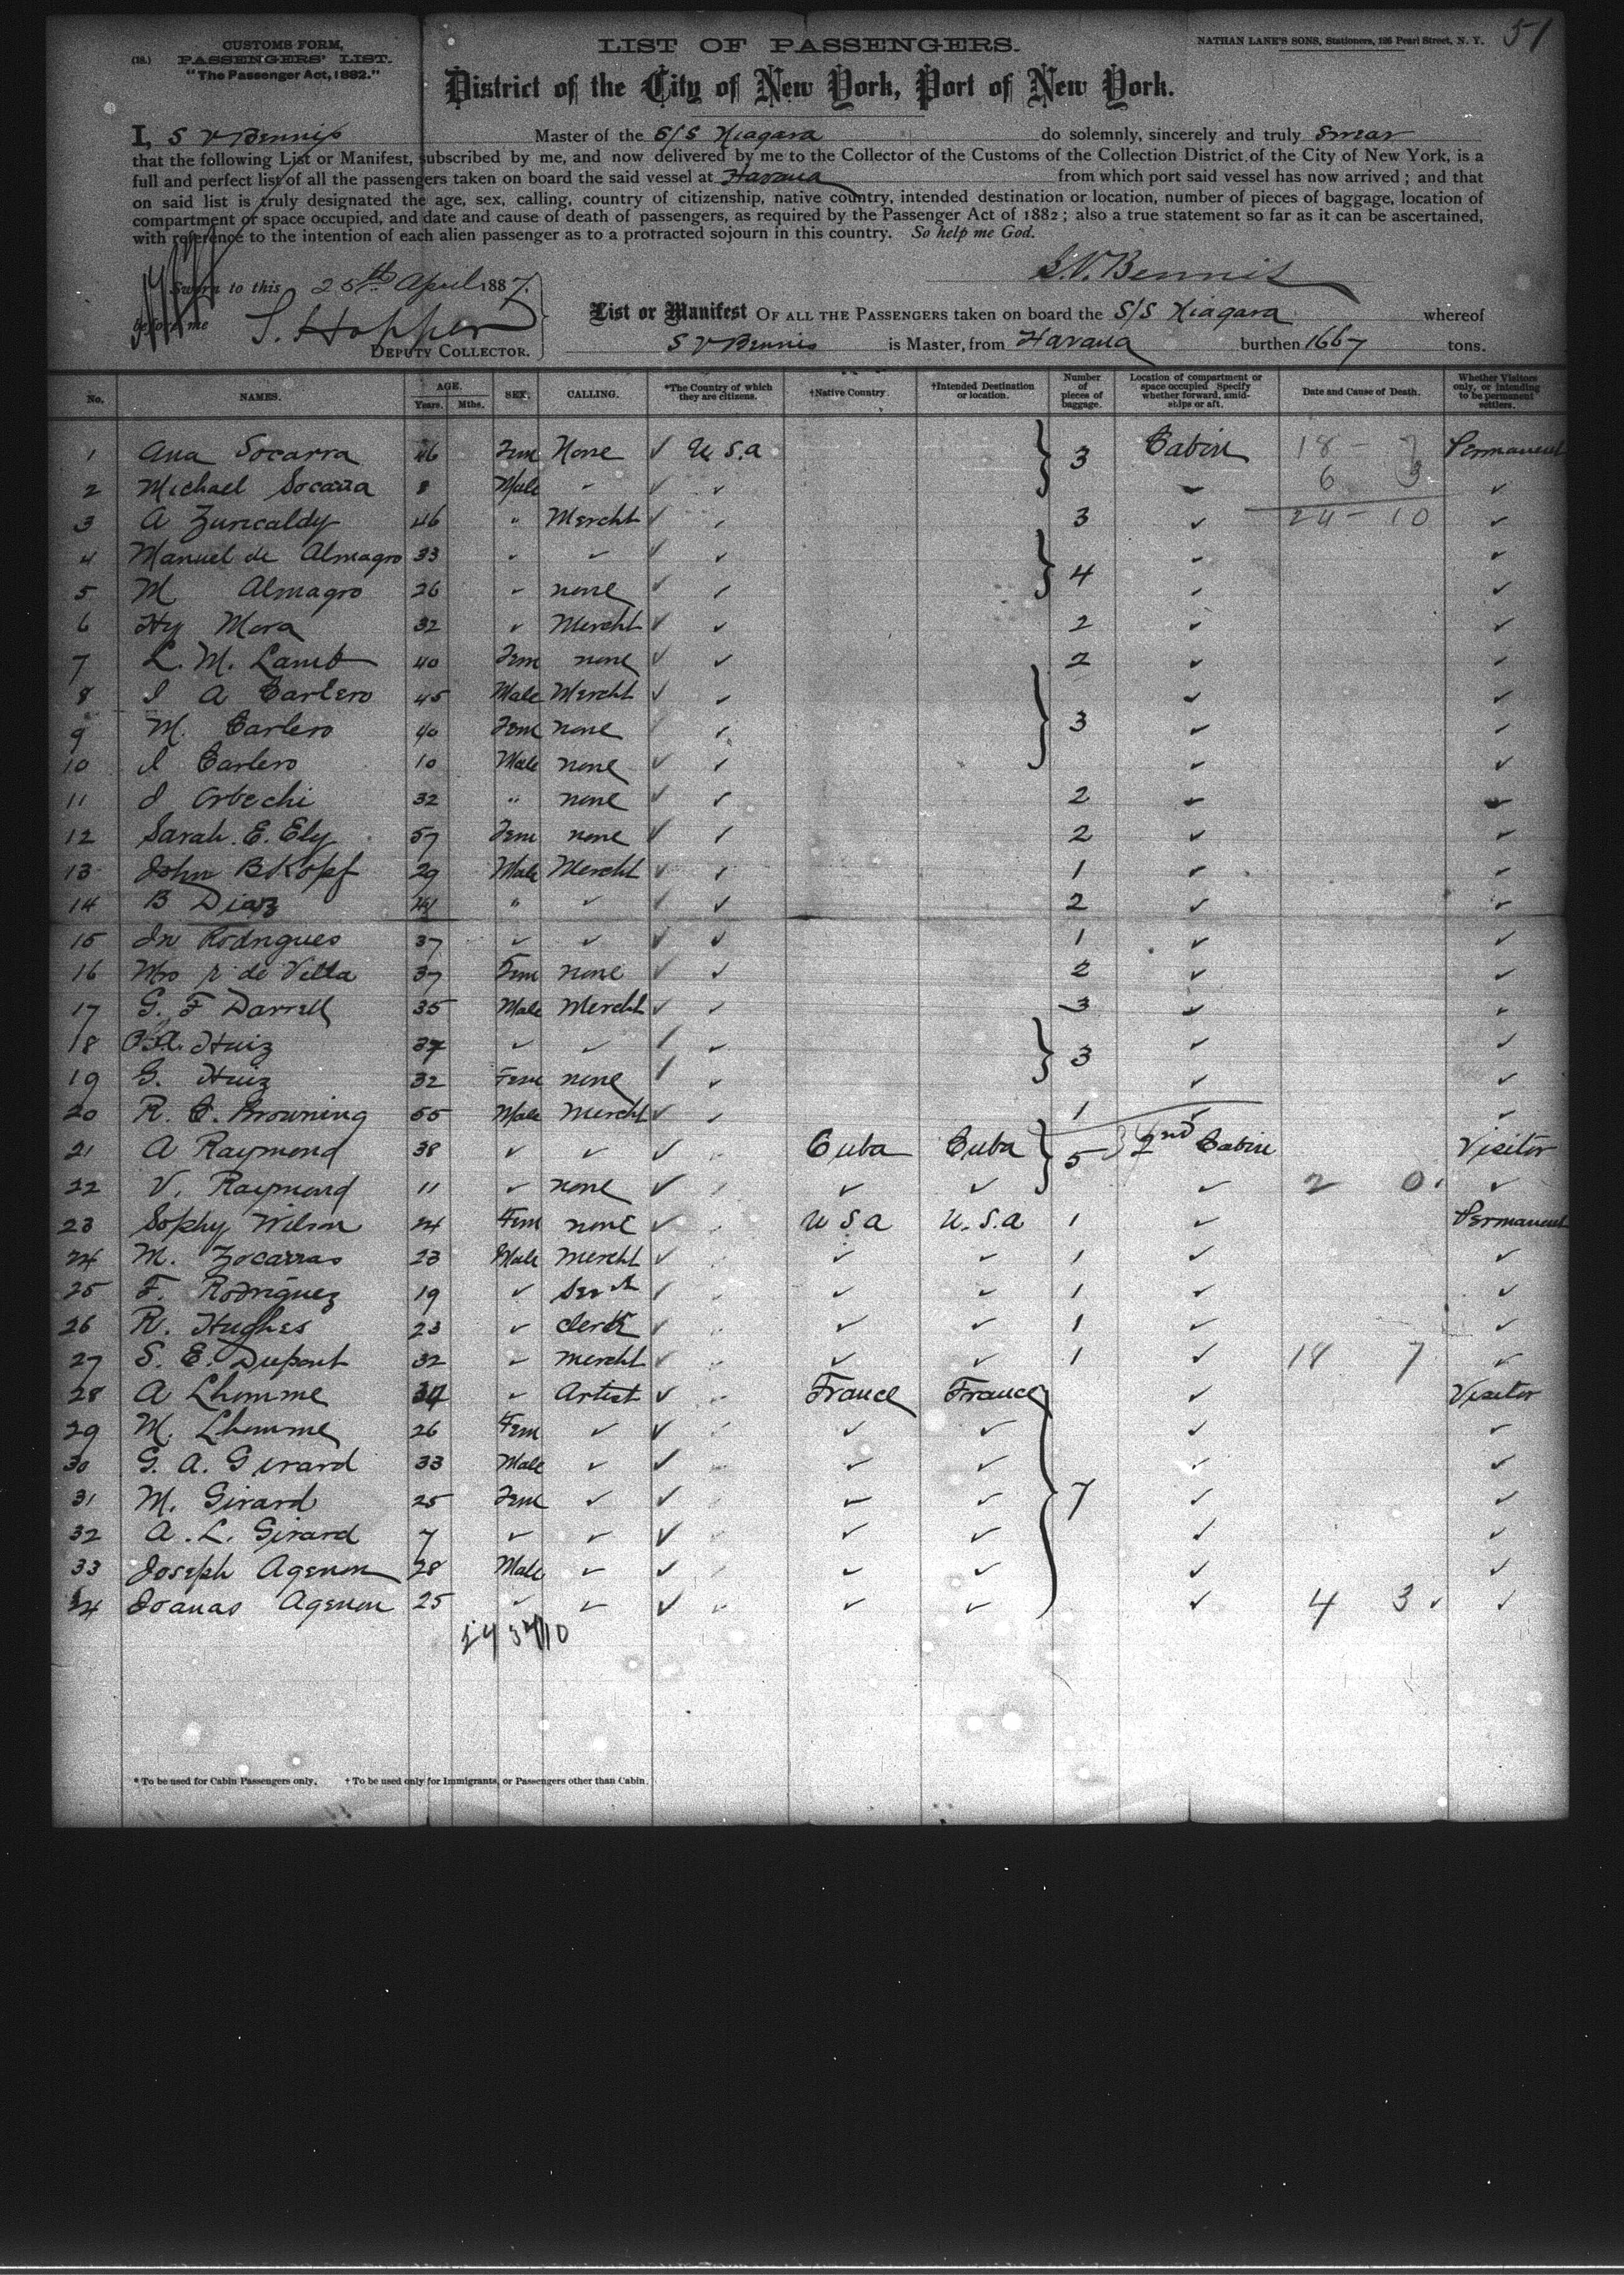 51
(18.) CUSTOMS FORM, PASSENGERS' LIST. "The Passenger Act, 1882."
LIST OF PASSENGERS.
NATHAN LANE'S SONS, Stationers, 126 Pearl Street, N. Y.
District of the City of New York, Port of New York.
I, S V Bennis Master of the S/S Niagara do solemnly, sincerely and truly Swear
that the following List or Manifest, subscribed by me, and now delivered by me to the Collector of the Customs of the Collection District of the City of New York, is a
full and perfect list of all the passengers taken on board the said vessel at Havana from which port said vessel has now arrived; and that
on said list is truly designated the age, sex, calling, country of citizenship, native country, intended destination or location, number of pieces of baggage, location of
compartment or space occupied, and date and cause of death of passengers, as required by the Passenger Act of 1882; also a true statement so far as it can be ascertained,
with reference to the intention of each alien passenger as to a protracted sojourn in this country. So help me God.
S.V. Bennis
Sworn to this 25th April 1887.
before me S. Hopper
DEPUTY COLLECTOR.
List or Manifest OF ALL THE PASSENGERS taken on board the S/S Niagara whereof
S V Bennis is Master, from Havana burthen 1667 tons.
No. NAMES. AGE. Years. Mths. SEX. CALLING. *The Country of which they are citizens. †Native Country. †Intended Destination or location. Number of pieces of baggage. Location of compartment or space occupied. Specify whether forward, amidships or aft. Date and Cause of Death. Whether Visitors only, or intending to be permanent settlers.
1 Ana Socarra 46 Fem None ✓ U.S.a 3 Cabin 18 - 7 Permanent
2 Michael Socarra 8 Male ✓ ✓ ✓ ✓ 6 3 ✓
3 A Zuricaldy 46 " Mercht ✓ ✓ 3 ✓ 24 - 10 ✓
4 Manuel de Almagro 33 ✓ ✓ ✓ ✓ 4 ✓ ✓
5 M Almagro 26 ✓ none ✓ ✓ ✓ ✓
6 Hy Mora 32 ✓ Mercht ✓ ✓ 2 ✓ ✓
7 L. M. Lamb 40 Fem none ✓ ✓ 2 ✓ ✓
8 I A Carlero 45 Male Mercht ✓ ✓ 3 ✓ ✓
9 M. Carlero 40 Fem none ✓ ✓ ✓ ✓
10 I Carlero 10 Male none ✓ ✓ ✓ ✓
11 J Orbechi 32 " none ✓ ✓ 2 ✓ ✓
12 Sarah. E. Ely 57 Fem none ✓ ✓ 2 ✓ ✓
13 John B Kopf 29 Male Mercht ✓ ✓ 1 ✓ ✓
14 B Diaz 44 " ✓ ✓ ✓ 2 ✓ ✓
15 Jn Rodrigues 37 ✓ ✓ ✓ ✓ 1 ✓ ✓
16 Mrs r de Villa 37 Fem none ✓ ✓ 2 ✓ ✓
17 G. F Darrell 35 Male Mercht ✓ ✓ 3 ✓ ✓
18 A. Huiz 37 ✓ ✓ ✓ ✓ 3 ✓ ✓
19 G. Huiz 32 Fem none ✓ ✓ ✓ ✓
20 R. C. Browning 55 Male Mercht ✓ ✓ 1 ✓ ✓
21 A Raymond 38 ✓ ✓ ✓ Cuba Cuba 5 2nd Cabin Visitor
22 V. Raymond 11 ✓ none ✓ ✓ ✓ ✓ 2 0. ✓
23 Sophy Wilson 24 Fem none ✓ U S a U.S.a 1 ✓ Permanent
24 M. Zocarras 23 Male Mercht ✓ ✓ ✓ 1 ✓ ✓
25 F. Rodriguez 19 ✓ Servt ✓ ✓ ✓ 1 ✓ ✓
26 R. Hughes 23 ✓ Clerk ✓ ✓ ✓ 1 ✓ ✓
27 S. E. Dupont 32 ✓ Mercht ✓ ✓ ✓ 1 ✓ 18 7 ✓
28 A Lhomme 34 ✓ Artist ✓ France France ✓ Visitor
29 M. Lhomme 26 Fem ✓ ✓ ✓ ✓ ✓ ✓
30 G. A. Girard 33 Male ✓ ✓ ✓ ✓ ✓ ✓
31 M. Girard 25 Fem ✓ ✓ ✓ ✓ 7 ✓ ✓
32 A. L. Girard 7 ✓ ✓ ✓ ✓ ✓ ✓ ✓
33 Joseph Agenon 28 Male ✓ ✓ ✓ ✓ ✓ ✓
34 Joanas Agenon 25 ✓ ✓ ✓ ✓ ✓ ✓ 4 3 ✓ ✓
* To be used for Cabin Passengers only. † To be used only for Immigrants, or Passengers other than Cabin.